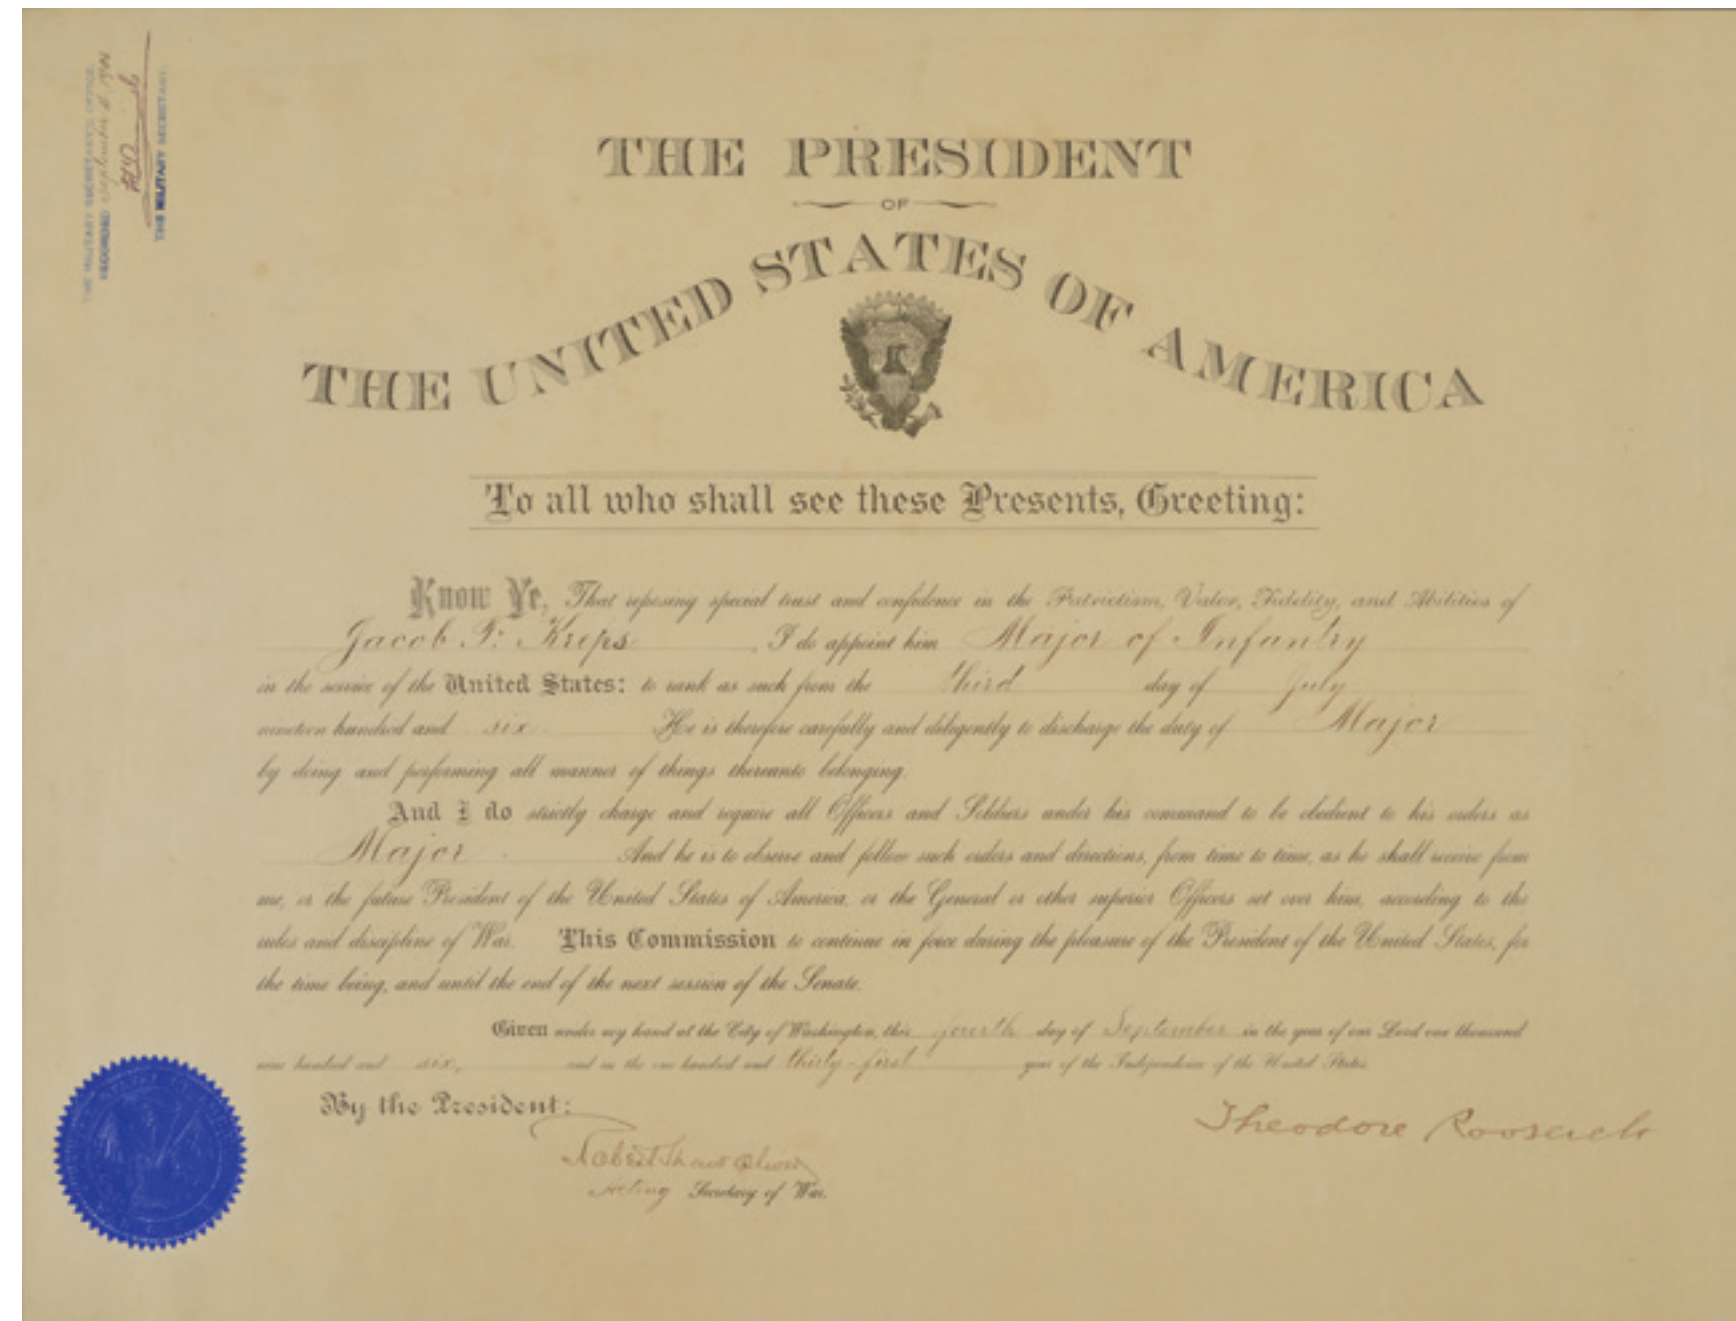 THE MILITARY SECRETARY'S OFFICE,
RECORDED September
THE MILITARY SECRETARY.
THE PRESIDENT
OF
THE UNITED STATES OF AMERICA
To all who shall see these Presents, Greeting:
Know Ye, That reposing special trust and confidence in the Patriotism, Valor, Fidelity, and Abilities of
Jacob F. Kreps, I do appoint him Major of Infantry
in the service of the United States: to rank as such from the third day of July
nineteen hundred and six. He is therefore carefully and diligently to discharge the duty of Major
by doing and performing all manner of things thereunto belonging.
And I do strictly charge and require all Officers and Soldiers under his command to be obedient to his orders as
Major. And he is to observe and follow such orders and directions, from time to time, as he shall receive from
me, or the future President of the United States of America, or the General or other superior Officers set over him, according to the
rules and discipline of War. This Commission to continue in force during the pleasure of the President of the United States, for
the time being, and until the end of the next session of the Senate.
Given under my hand at the City of Washington, this fourth day of September in the year of our Lord one thousand
nine hundred and six, and in the one hundred and thirty-first year of the Independence of the United States.
By the President:
Theodore Roosevelt
Robert Shaw Oliver
Acting Secretary of War.